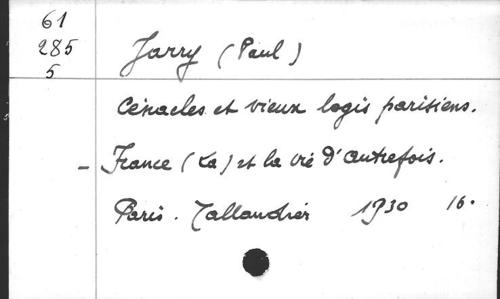 61
285
5
Jarry (Paul)
Cénacles et vieux logis parisiens.
- France (La) et la vie d'autrefois.
Paris. Tallandier 1930 16.